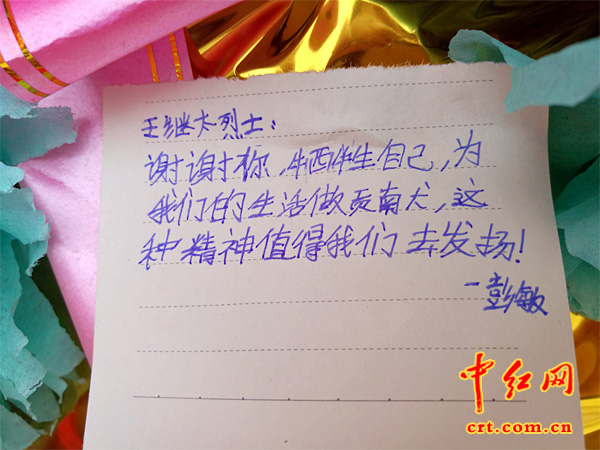 王继才烈士：
谢谢你,牺牲自己,为
我们的生活做贡献,这
种精神值得我们去发扬!
-彭敏
中红网
crt.com.cn